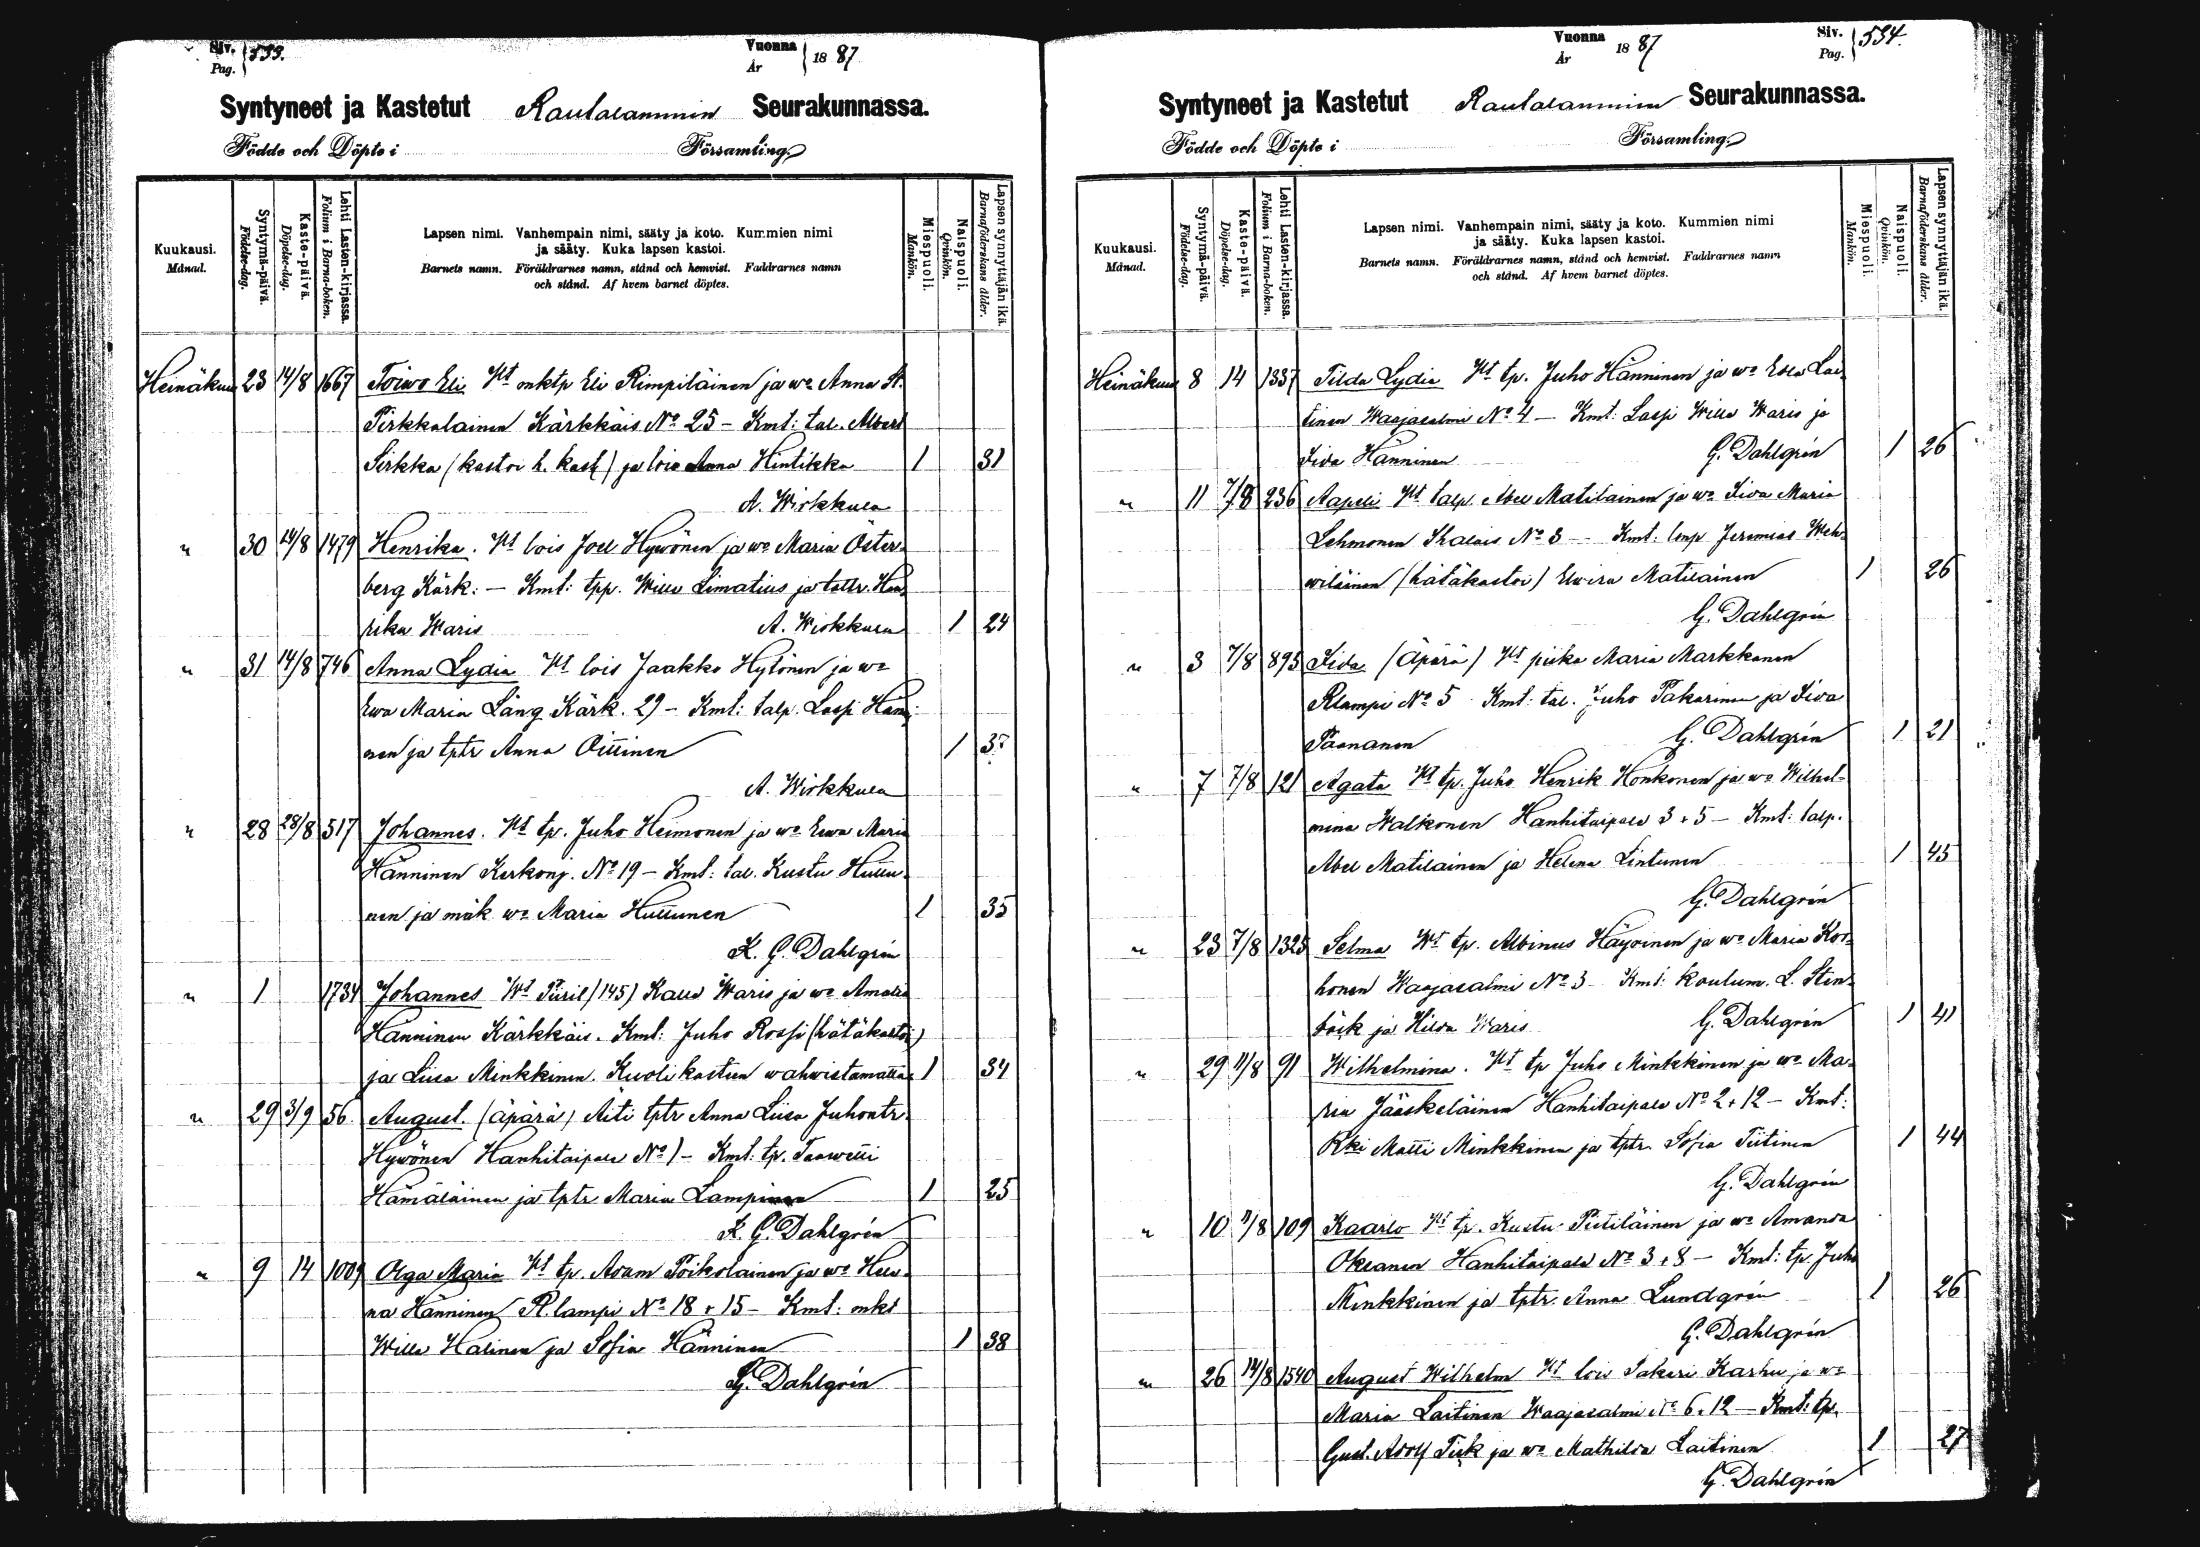 Siv. Pag. 533.
Vuonna År 1887
Syntyneet ja Kastetut Rautalammin Seurakunnassa.
Födde och Döpte i Församling.
Kuukausi. Månad.
Syntymä-päivä. Födelse-dag.
Kaste-päivä. Döpelse-dag.
Lehti Lasten-kirjassa. Folium i Barna-boken.
Lapsen nimi. Vanhempain nimi, sääty ja koto. Kummien nimi
ja sääty. Kuka lapsen kastoi.
Barnets namn. Föräldrarnes namn, stånd och hemvist. Faddrarnes namn
och stånd. Af hvem barnet döptes.
Miespuoli. Mankön.
Naispuoli. Qvinkön.
Lapsen synnyttäjän ikä. Barnaföderskans ålder.
Heinäkuu 23 14/8 1667 Toiwo Eli Vt mktp Eli Rimpiläinen ja wo Anna St.
Pirkkalainen Kärkkäis No 25 – Kmt: tal. Albert
Sirkka (kastoi h. kast) ja lois Anna Hintikka 1 31
A. Wirkkula
" 30 14/8 1479 Henrika. Vt lois Joel Hywönen ja wo Maria Öster-
berg Kärk: – Kmt: tpp. Wille Limatius ja taltr. Hen-
rika Waris A. Wirkkula 1 24
" 31 14/8 746 Anna Lydia Vt lois Jaakko Hytönen ja wo
Ewa Maria Läng Kärk. 29 – Kmt: talp. Lassi Hänni-
nen ja tptr Anna Oittinen 1 37
A. Wirkkula
" 28 28/8 517 Johannes. Vt tp. Juho Heimonen ja wo Eewa Maria
Hänninen Kerkonj. No 19 – Kmt: tal. Kustu Huttu-
nen ja mäk wo Maria Huttunen 1 35
K. G. Dahlgrén
" 1 1734 Johannes Vt Piiril (145) Kalle Waris ja wo Amalia
Hänninen Kärkkäis. Kmt: Juho Rossi (hätäkastoi)
ja Liisa Minkkinen. Kuoli kasteen wahwistamatta 1 34
" 29 3/9 56 August. (äpärä) Äiti tptr Anna Liisa Juhontr.
Hywönen Hanhitaipale No 1 – Kmt: tp. Taawetti
Hämäläinen ja tptr Maria Lampinen 1 25
K. G. Dahlgrén
" 9 14 1009 Olga Maria Vt tp. Adam Poikolainen ja wo Hele-
na Hänninen R.lampi No 18 + 15 – Kmt: mkt
Wille Halinen ja Sofia Hänninen 1 38
G. Dahlgrén
Siv. Pag. 534.
Vuonna År 1887
Syntyneet ja Kastetut Rautalammin Seurakunnassa.
Födde och Döpte i Församling.
Kuukausi. Månad.
Syntymä-päivä. Födelse-dag.
Kaste-päivä. Döpelse-dag.
Lehti Lasten-kirjassa. Folium i Barna-boken.
Lapsen nimi. Vanhempain nimi, sääty ja koto. Kummien nimi
ja sääty. Kuka lapsen kastoi.
Barnets namn. Föräldrarnes namn, stånd och hemvist. Faddrarnes namn
och stånd. Af hvem barnet döptes.
Miespuoli. Mankön.
Naispuoli. Qvinkön.
Lapsen synnyttäjän ikä. Barnaföderskans ålder.
Heinäkuu 8 14 1337 Tilda Lydia Vt tp. Juho Hänninen ja wo Eeva Lai-
tinen Waajasalmi No 4 – Kmt: Lassi Wille Waris ja
Iida Hänninen G. Dahlgrén 1 26
" 11 7/8 236 Aapeli Vt talp. Abel Matilainen ja wo Iida Maria
Lehmonen No 3 – Kmt: Jeremias Weh-
wiläinen (hätäkastoi) Elwira Matilainen 1 26
G. Dahlgrén
" 3 7/8 895 Iida (Äpärä) Vt piika Maria Markkanen
R.lampi No 5 Kmt: tal. Juho Pakarinen ja Iida
Paananen G. Dahlgrén 1 21
" 7 7/8 121 Agata Vt tp. Juho Henrik Honkonen ja wo Wilhel-
mina Walkonen Hanhitaipale 3 + 5 – Kmt: talp.
Abel Matilainen ja Helena Lintunen 1 45
G. Dahlgrén
" 23 7/8 1325 Selma Vt tp. Albinus Häyrinen ja wo Maria Kor-
honen Waajasalmi No 3 Kmt: koulum. L. Sten-
bäck ja Hilda Waris G. Dahlgrén 1 41
" 29 11/8 91 Wilhelmina. Vt tp Juho Minkkinen ja wo Ma-
ria Jääskeläinen Hanhitaipale No 2 + 12 – Kmt:
Rki Matti Minkkinen ja tptr. Sofia Tiitinen 1 44
G. Dahlgrén
" 10 11/8 109 Kaarlo Vt tp. Kustu Pietiläinen ja wo Amanda
Oksanen Hanhitaipale No 3 + 8 – Kmt: tp. Juho
Minkkinen ja tptr. Anna Lundgrén 1 26
G. Dahlgrén
" 26 14/8 1540 August Wilhelm Vt lois Sakari Karhu ja wo
Maria Laitinen Waajasalmi No 6 + 12 – Kmt: tp.
Gust. Adolf Tisk ja wo Mathilda Laitinen 1 27
G. Dahlgrén